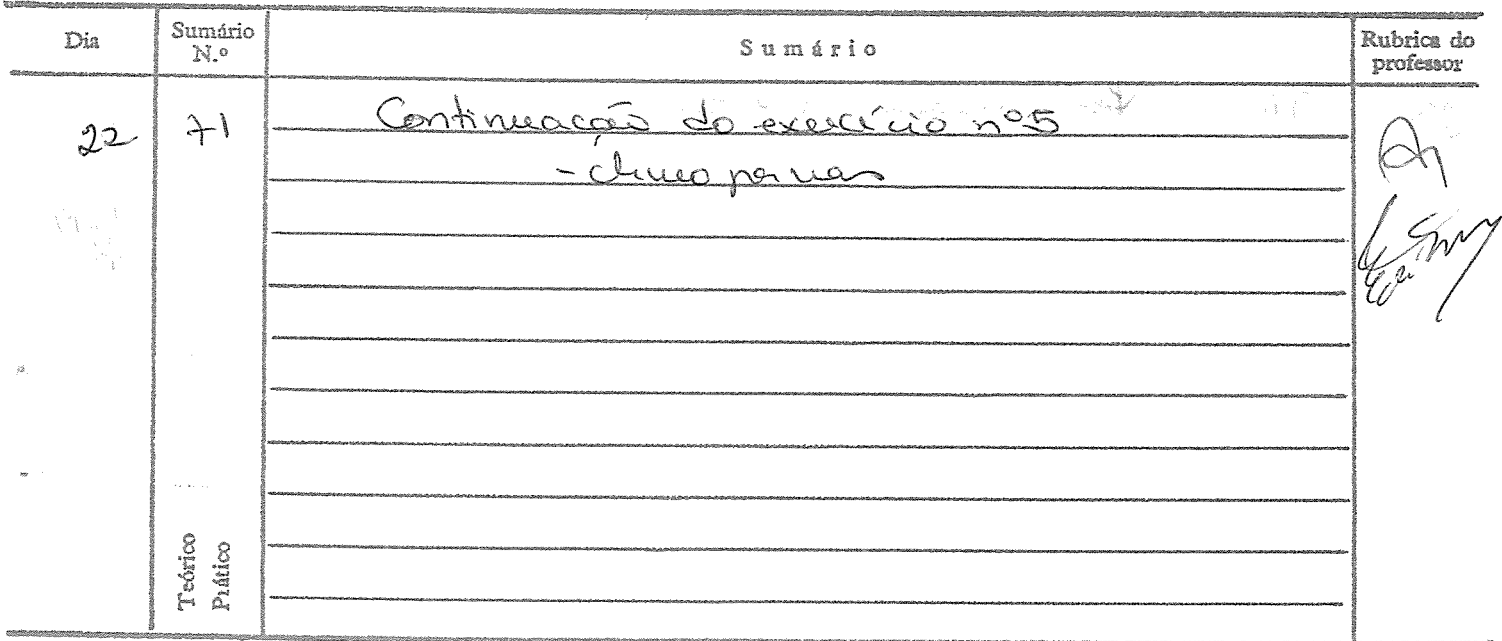 Dia
Sumário N.º
Sumário
Rubrica do professor
22 71 Continuação do exercício nº5
-
Teórico
Prático